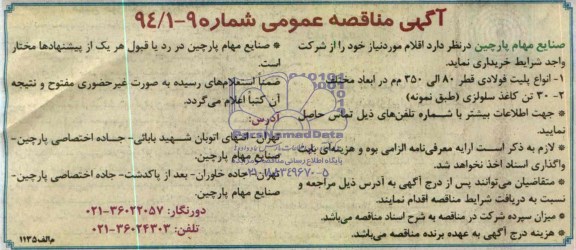 آگهی مناقصه عمومی شماره ۹-۹۴/۱
صنایع مهام پارچین درنظر دارد اقلام موردنیاز خود را از شرکت
واجد شرایط خریداری نماید.
۱- انواع پلیت فولادی قطر ۸۰ الی ۳۵۰ مم در ابعاد مختلف
۲- ۳۰ تن کاغذ سلولزی (طبق نمونه)
* جهت اطلاعات بیشتر با شماره تلفن‌های ذیل تماس حاصل
نمایید.
* لازم به ذکر است ارایه معرفی‌نامه الزامی بوده و هزینه‌ای بابت
واگذاری اسناد اخذ نخواهد شد.
* متقاضیان می‌توانند پس از درج آگهی به آدرس ذیل مراجعه و
نسبت به دریافت شرایط مناقصه اقدام نمایند.
* میزان سپرده شرکت در مناقصه به شرح اسناد مناقصه می‌باشد.
* هزینه درج آگهی به عهده برنده مناقصه می‌باشد.
* صنایع مهام پارچین در رد یا قبول هر یک از پیشنهادها مختار
است.
ضمناً استعلام‌های رسیده به صورت غیرحضوری مفتوح و نتیجه
آن کتباً اعلام می‌گردد.
آدرس:
تهران- انتهای اتوبان شهید بابائی- جاده اختصاصی پارچین-
صنایع مهام پارچین.
تهران- جاده خاوران- بعد از پاکدشت- جاده اختصاصی پارچین-
صنایع مهام پارچین.
دورنگار: ۳۶۰۲۲۰۵۷-۰۲۱
تلفن: ۳۶۰۲۴۳۰۳-۰۲۱
م‌الف ۱۱۳۵
ParsNamadData
پایگاه اطلاع رسانی
۰۲۱-۸۸۳۴۹۶۷۰-۵